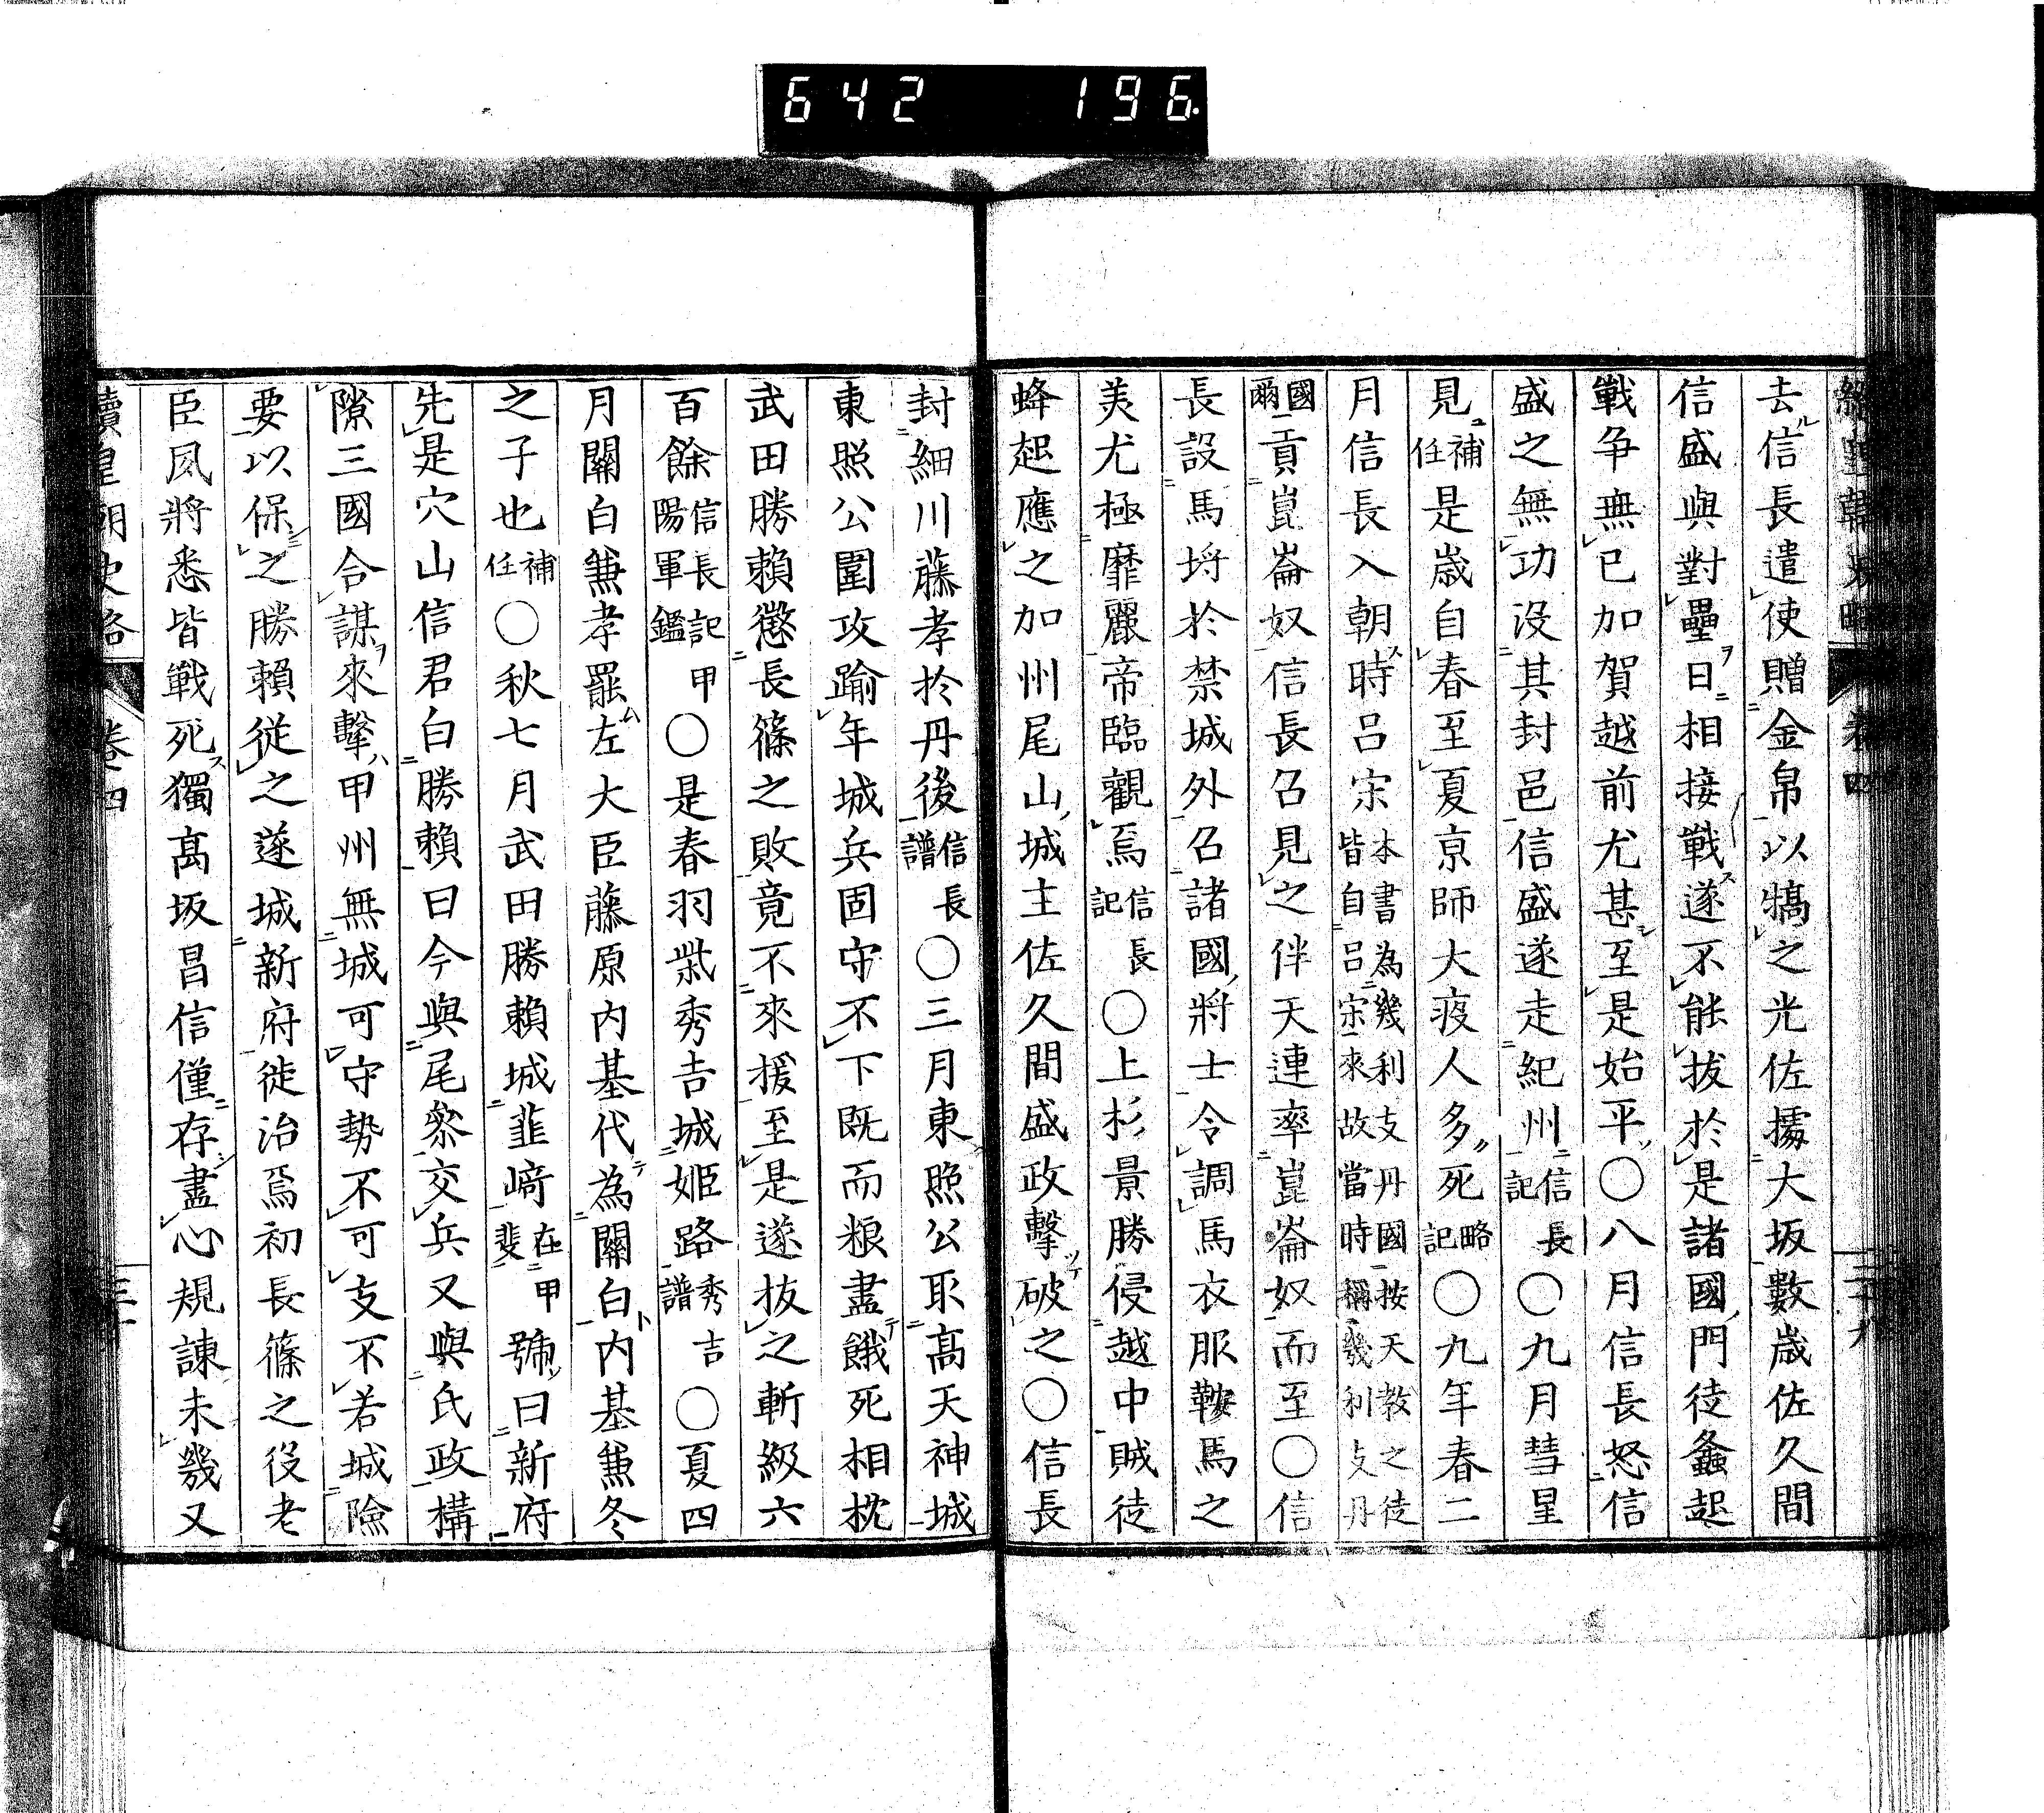 642 196
去信長遣使贈金帛以犒之光佐據大坂數歲佐久間
信盛與對壘日相接戰遂不能拔於是諸國門徒蠭起
戰爭無已加賀越前尤甚至是始平〇八月信長怒信
盛之無功沒其封邑信盛遂走紀州信長記〇九月彗星
見補任是歲自春至夏京師大疫人多死略記〇九年春二
月信長入朝時呂宋本書為幾利支丹國按天教之徒皆自呂宋來故當時稱幾利支丹
國爾貢崑崙奴信長召見之伴天連率崑崙奴而至〇信
長設馬埒於禁城外召諸國將士令調馬衣服鞍馬之
美尤極靡麗帝臨觀焉信長記〇上杉景勝侵越中賊徒
蜂起應之加州尾山城主佐久間盛政擊破之〇信長
封細川藤孝於丹後信長譜〇三月東照公取高天神城
東照公圍攻踰年城兵固守不下既而粮盡餓死相枕
武田勝賴懲長篠之敗竟不來援至是遂拔之斬級六
百餘信長記甲陽軍鑑〇是春羽柴秀吉城姬路秀吉譜〇夏四
月關白兼孝罷左大臣藤原內基代為關白內基兼冬
之子也補任〇秋七月武田勝賴城韮崎在甲斐號曰新府
先是穴山信君白勝賴曰今與尾參交兵又與氏政構
隙三國合謀來擊甲州無城可守勢不可支不若城險
要以保之勝賴從之遂城新府徙治焉初長篠之役老
臣夙將悉皆戰死獨高坂昌信僅存盡心規諫未幾又
續皇朝史略 卷四